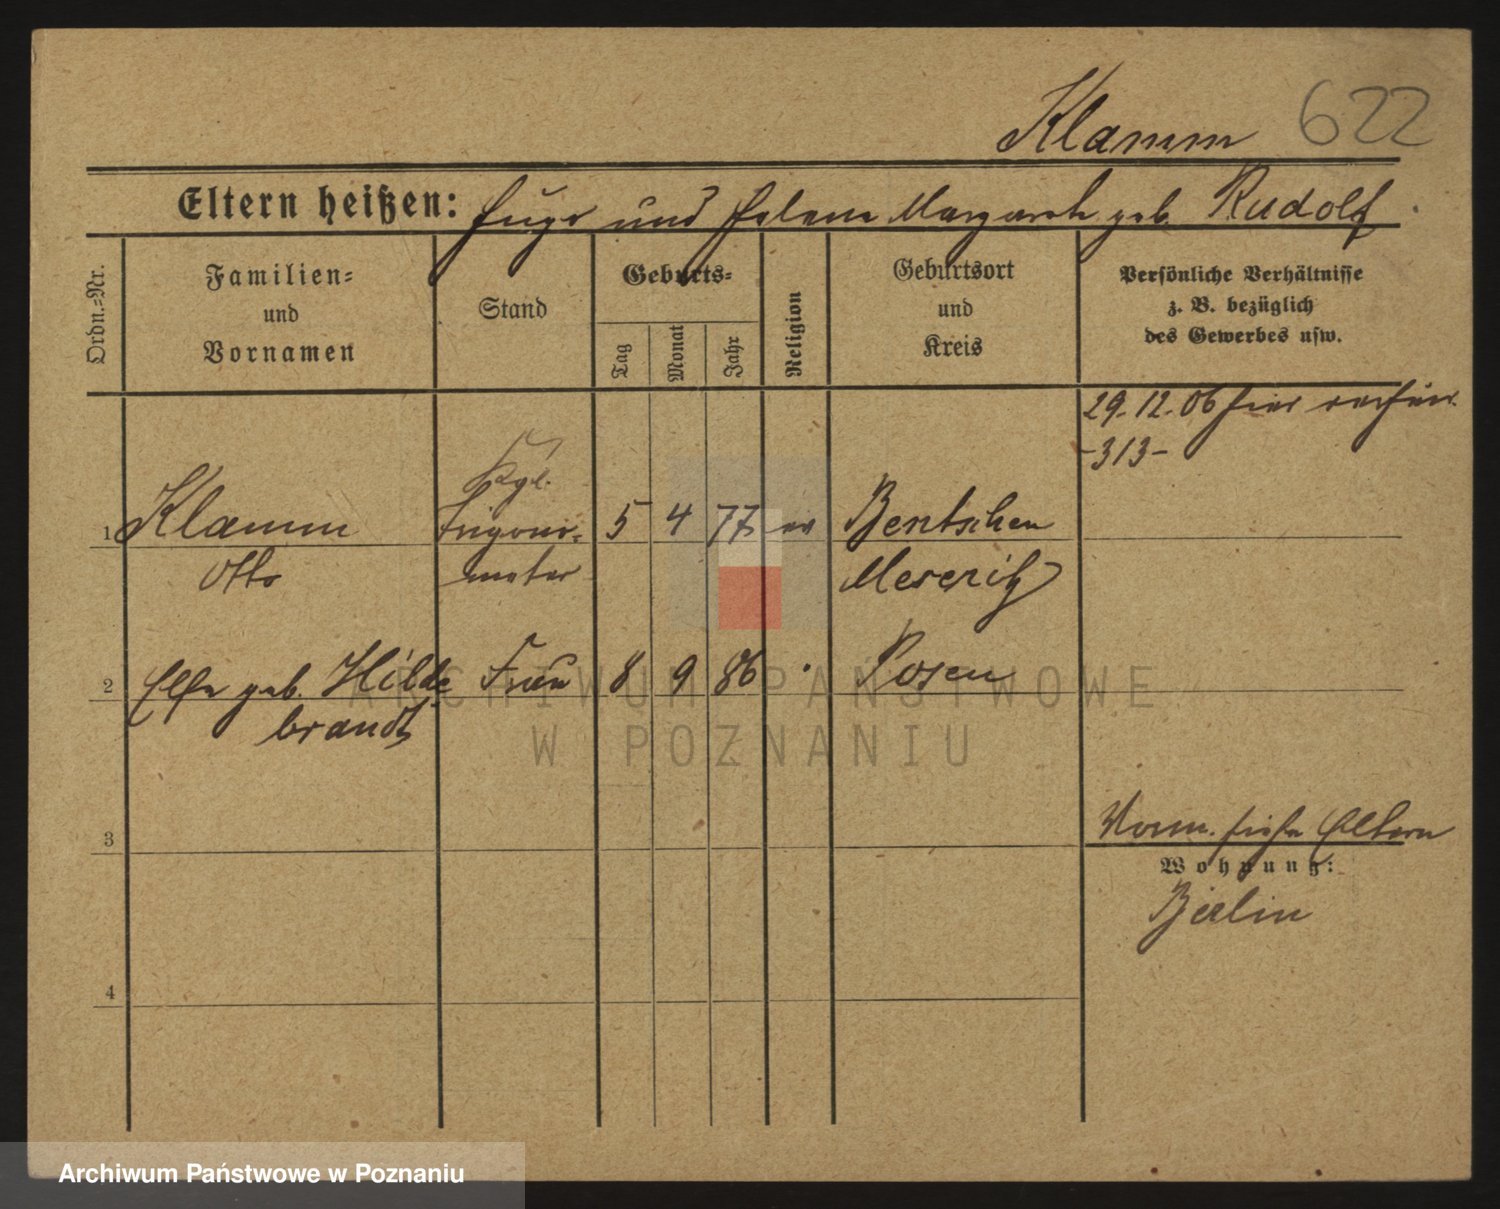 Klamm 622
Eltern heißen: Hugo und Helene Margareth geb. Rudolf
Ordn.-Nr.
Familien-
und
Vornamen
Stand
Geburts-
Tag
Monat
Jahr
Religion
Geburtsort
und
Kreis
Persönliche Verhältnisse
z. B. bezüglich
des Gewerbes usw.
29.12.06 hier
-313-
Kgl.
1 Klamm Trigono- 5 4 77 ev Bentschen
Otto meter Meseritz
2 Else geb. Hilde Frau 8 9 86 Posen
brandt
3
4
Vorm. siehe Eltern
Wohnung:
Berlin
ARCHIWUM PAŃSTWOWE
W POZNANIU
Archiwum Państwowe w Poznaniu